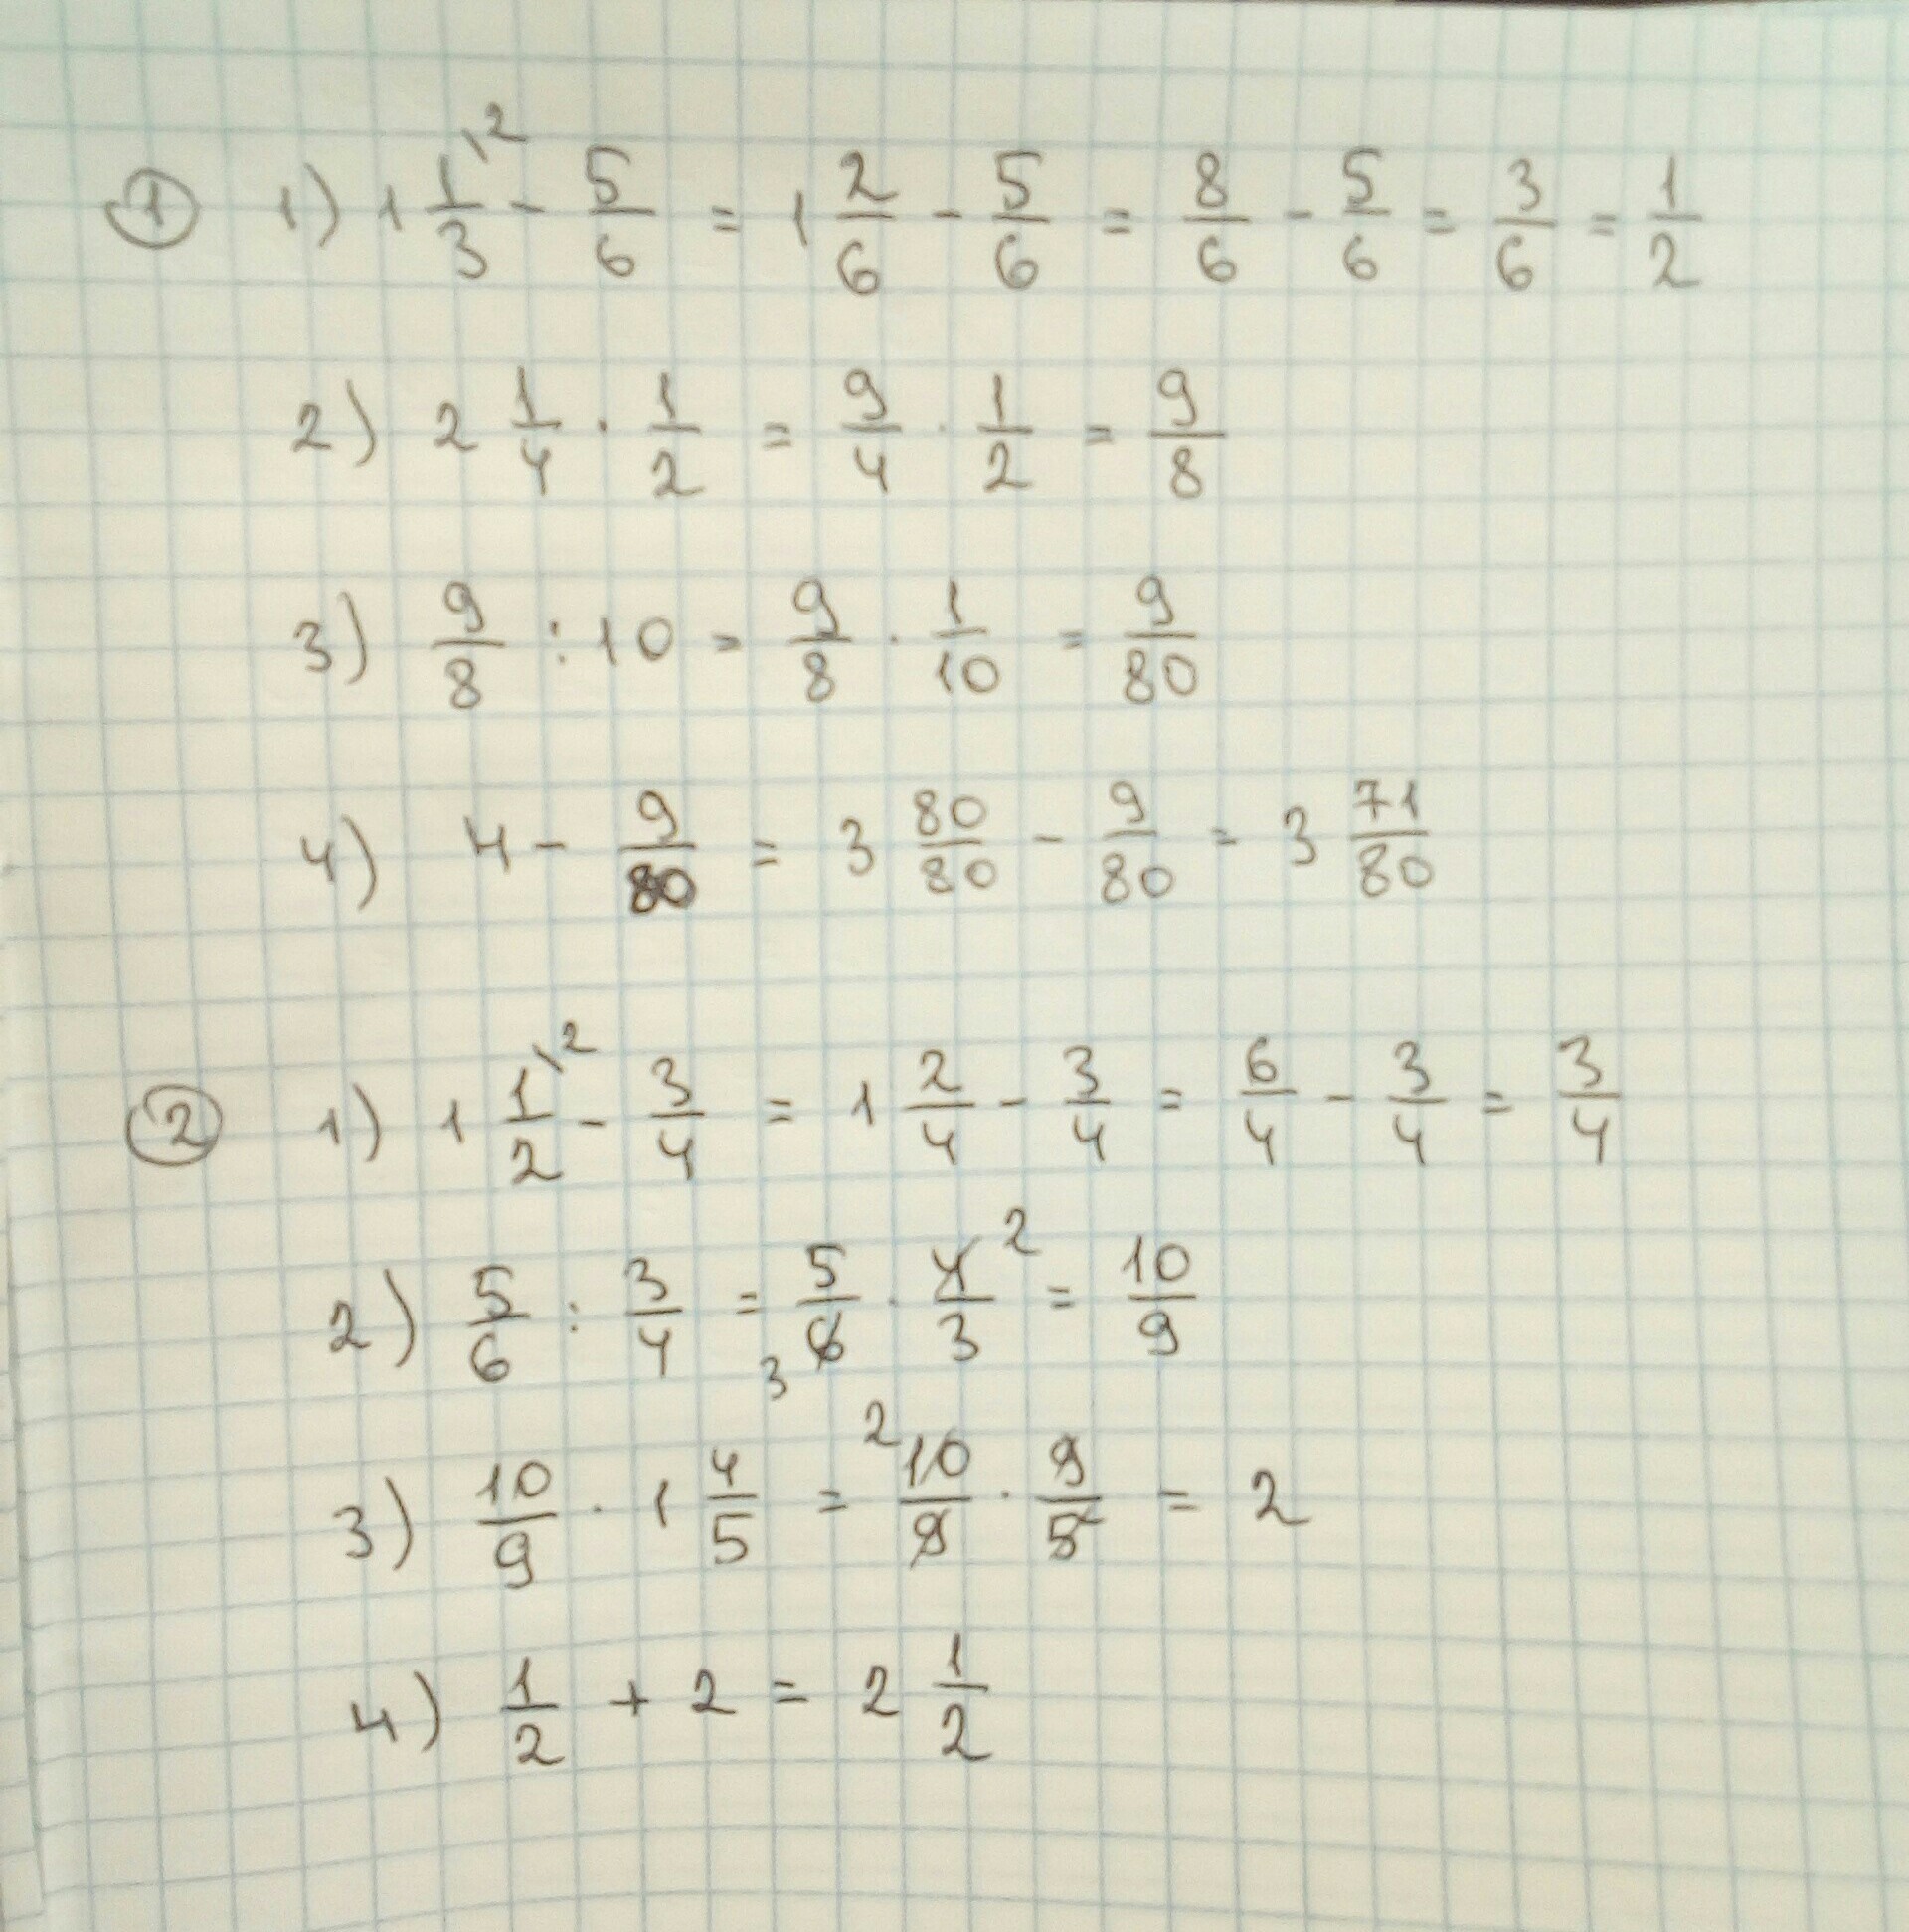 ① 1) 1 1/3 \2 - 5/6 = 1 2/6 - 5/6 = 8/6 - 5/6 = 3/6 = 1/2
2) 2 1/4 · 1/2 = 9/4 · 1/2 = 9/8
3) 9/8 : 10 = 9/8 · 1/10 = 9/80
4) 4 - 9/80 = 3 80/80 - 9/80 = 3 71/80
② 1) 1 1/2 \2 - 3/4 = 1 2/4 - 3/4 = 6/4 - 3/4 = 3/4
2) 5/6 : 3/4 = 5/6 3 · 4 2/3 = 10/9
3) 10/9 · 1 4/5 = 2 10/9 · 9/5 = 2
4) 1/2 + 2 = 2 1/2